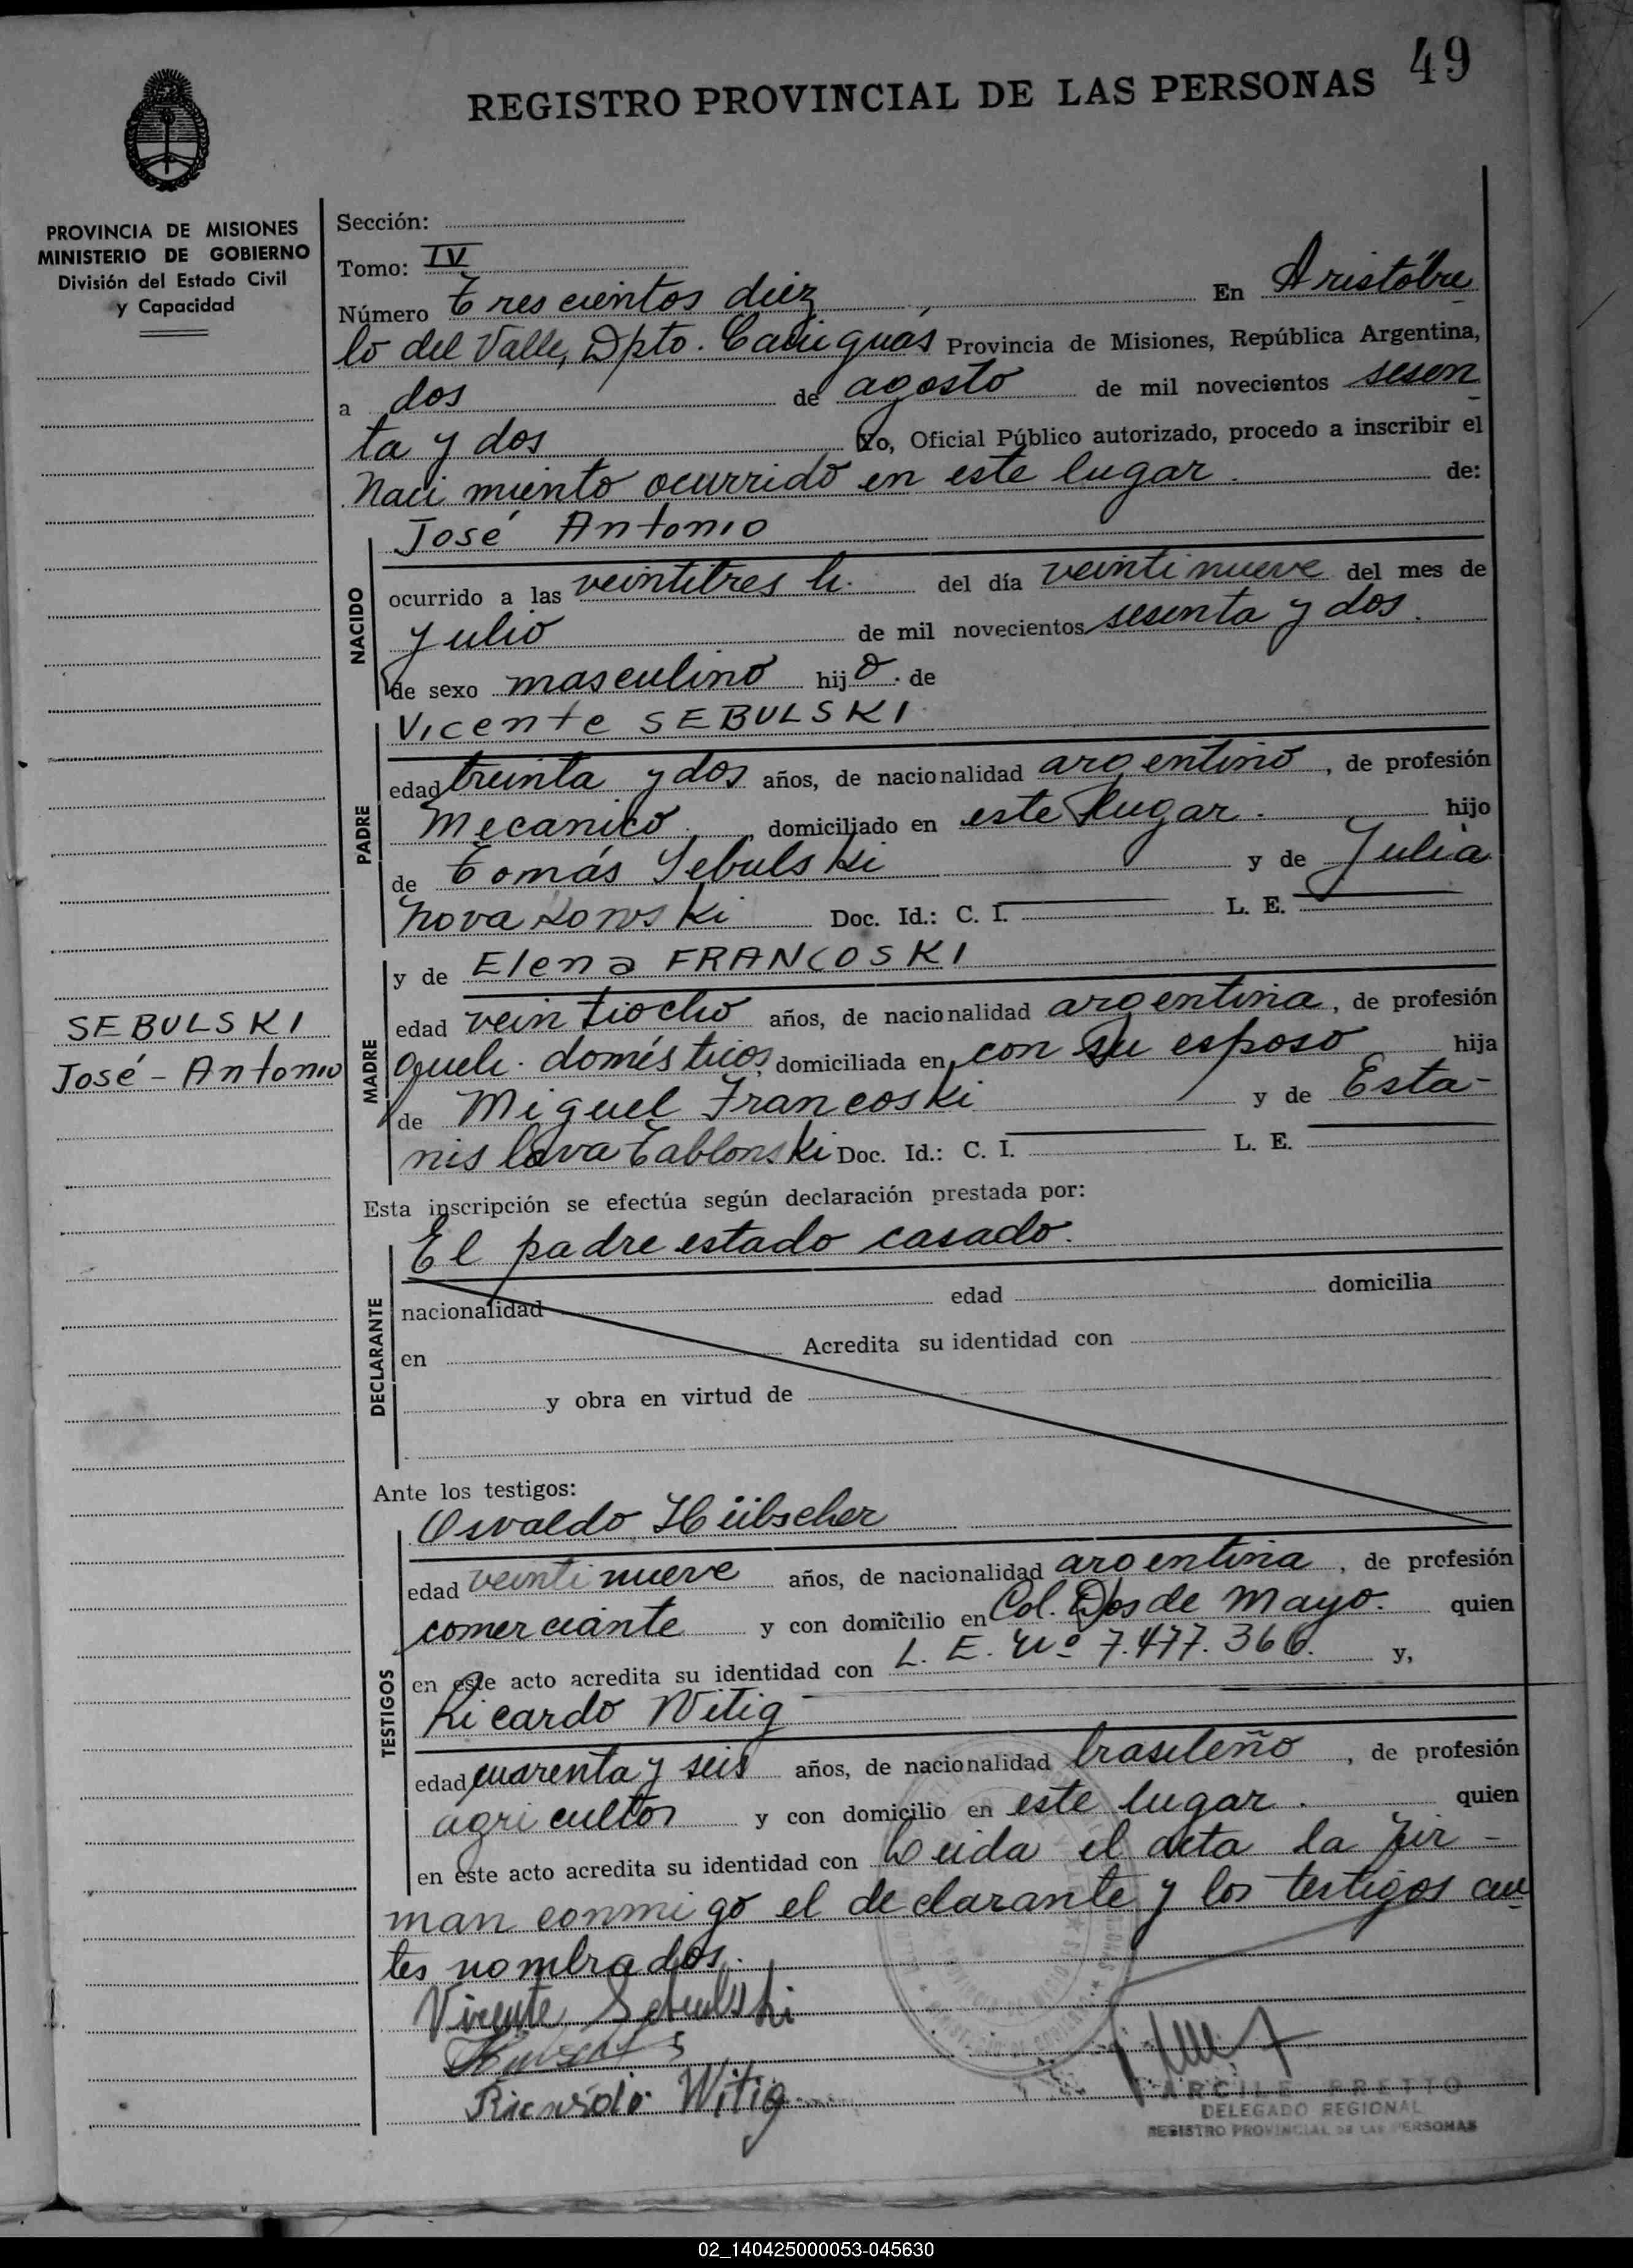 49
REGISTRO PROVINCIAL DE LAS PERSONAS
PROVINCIA DE MISIONES
MINISTERIO DE GOBIERNO
División del Estado Civil
y Capacidad
SEBULSKI
José - Antonio
Sección:
Tomo: IV
Número Trescientos diez, En Aristóbu
lo del Valle, Dpto. Cainguás Provincia de Misiones, República Argentina,
a dos de agosto de mil novecientos sesen
ta y dos Yo, Oficial Público autorizado, procedo a inscribir el
Nacimiento ocurrido en este lugar. de:
NACIDO
José Antonio
ocurrido a las veintitres h. del día veintinueve del mes de
Julio de mil novecientos sesenta y dos.
de sexo masculino hijo. de
PADRE
Vicente SEBULSKI
edad treinta y dos años, de nacionalidad argentino, de profesión
Mecanico, domiciliado en este lugar. hijo
de Tomás Sebulski y de Julia
Novakowski Doc. Id.: C. I. L. E.
MADRE
y de Elena FRANCOSKI
edad veintiocho años, de nacionalidad argentina, de profesión
queh. domésticos, domiciliada en con su esposo hija
de Miguel Francoski y de Esta-
nislava Tablonski Doc. Id.: C. I. L. E.
Esta inscripción se efectúa según declaración prestada por:
DECLARANTE
El padre estado casado.
nacionalidad edad domicilia
en Acredita su identidad con
y obra en virtud de
Ante los testigos:
TESTIGOS
Osvaldo Hübscher
edad veintinueve años, de nacionalidad argentina, de profesión
comerciante y con domicilio en Col. Dos de Mayo. quien
en este acto acredita su identidad con L. E. Nº 7.477.366. y,
Ricardo Witig
edad cuarenta y seis años, de nacionalidad brasileño, de profesión
agricultor y con domicilio en este lugar. quien
en este acto acredita su identidad con Leida el acta la fir-
man conmigo el declarante y los testigos an
tes nombrados.
Vicente Sebulski
Ricardo Witig
BRETTO
DELEGADO REGIONAL
REGISTRO PROVINCIAL DE LAS PERSONAS
02_140425000053-045630